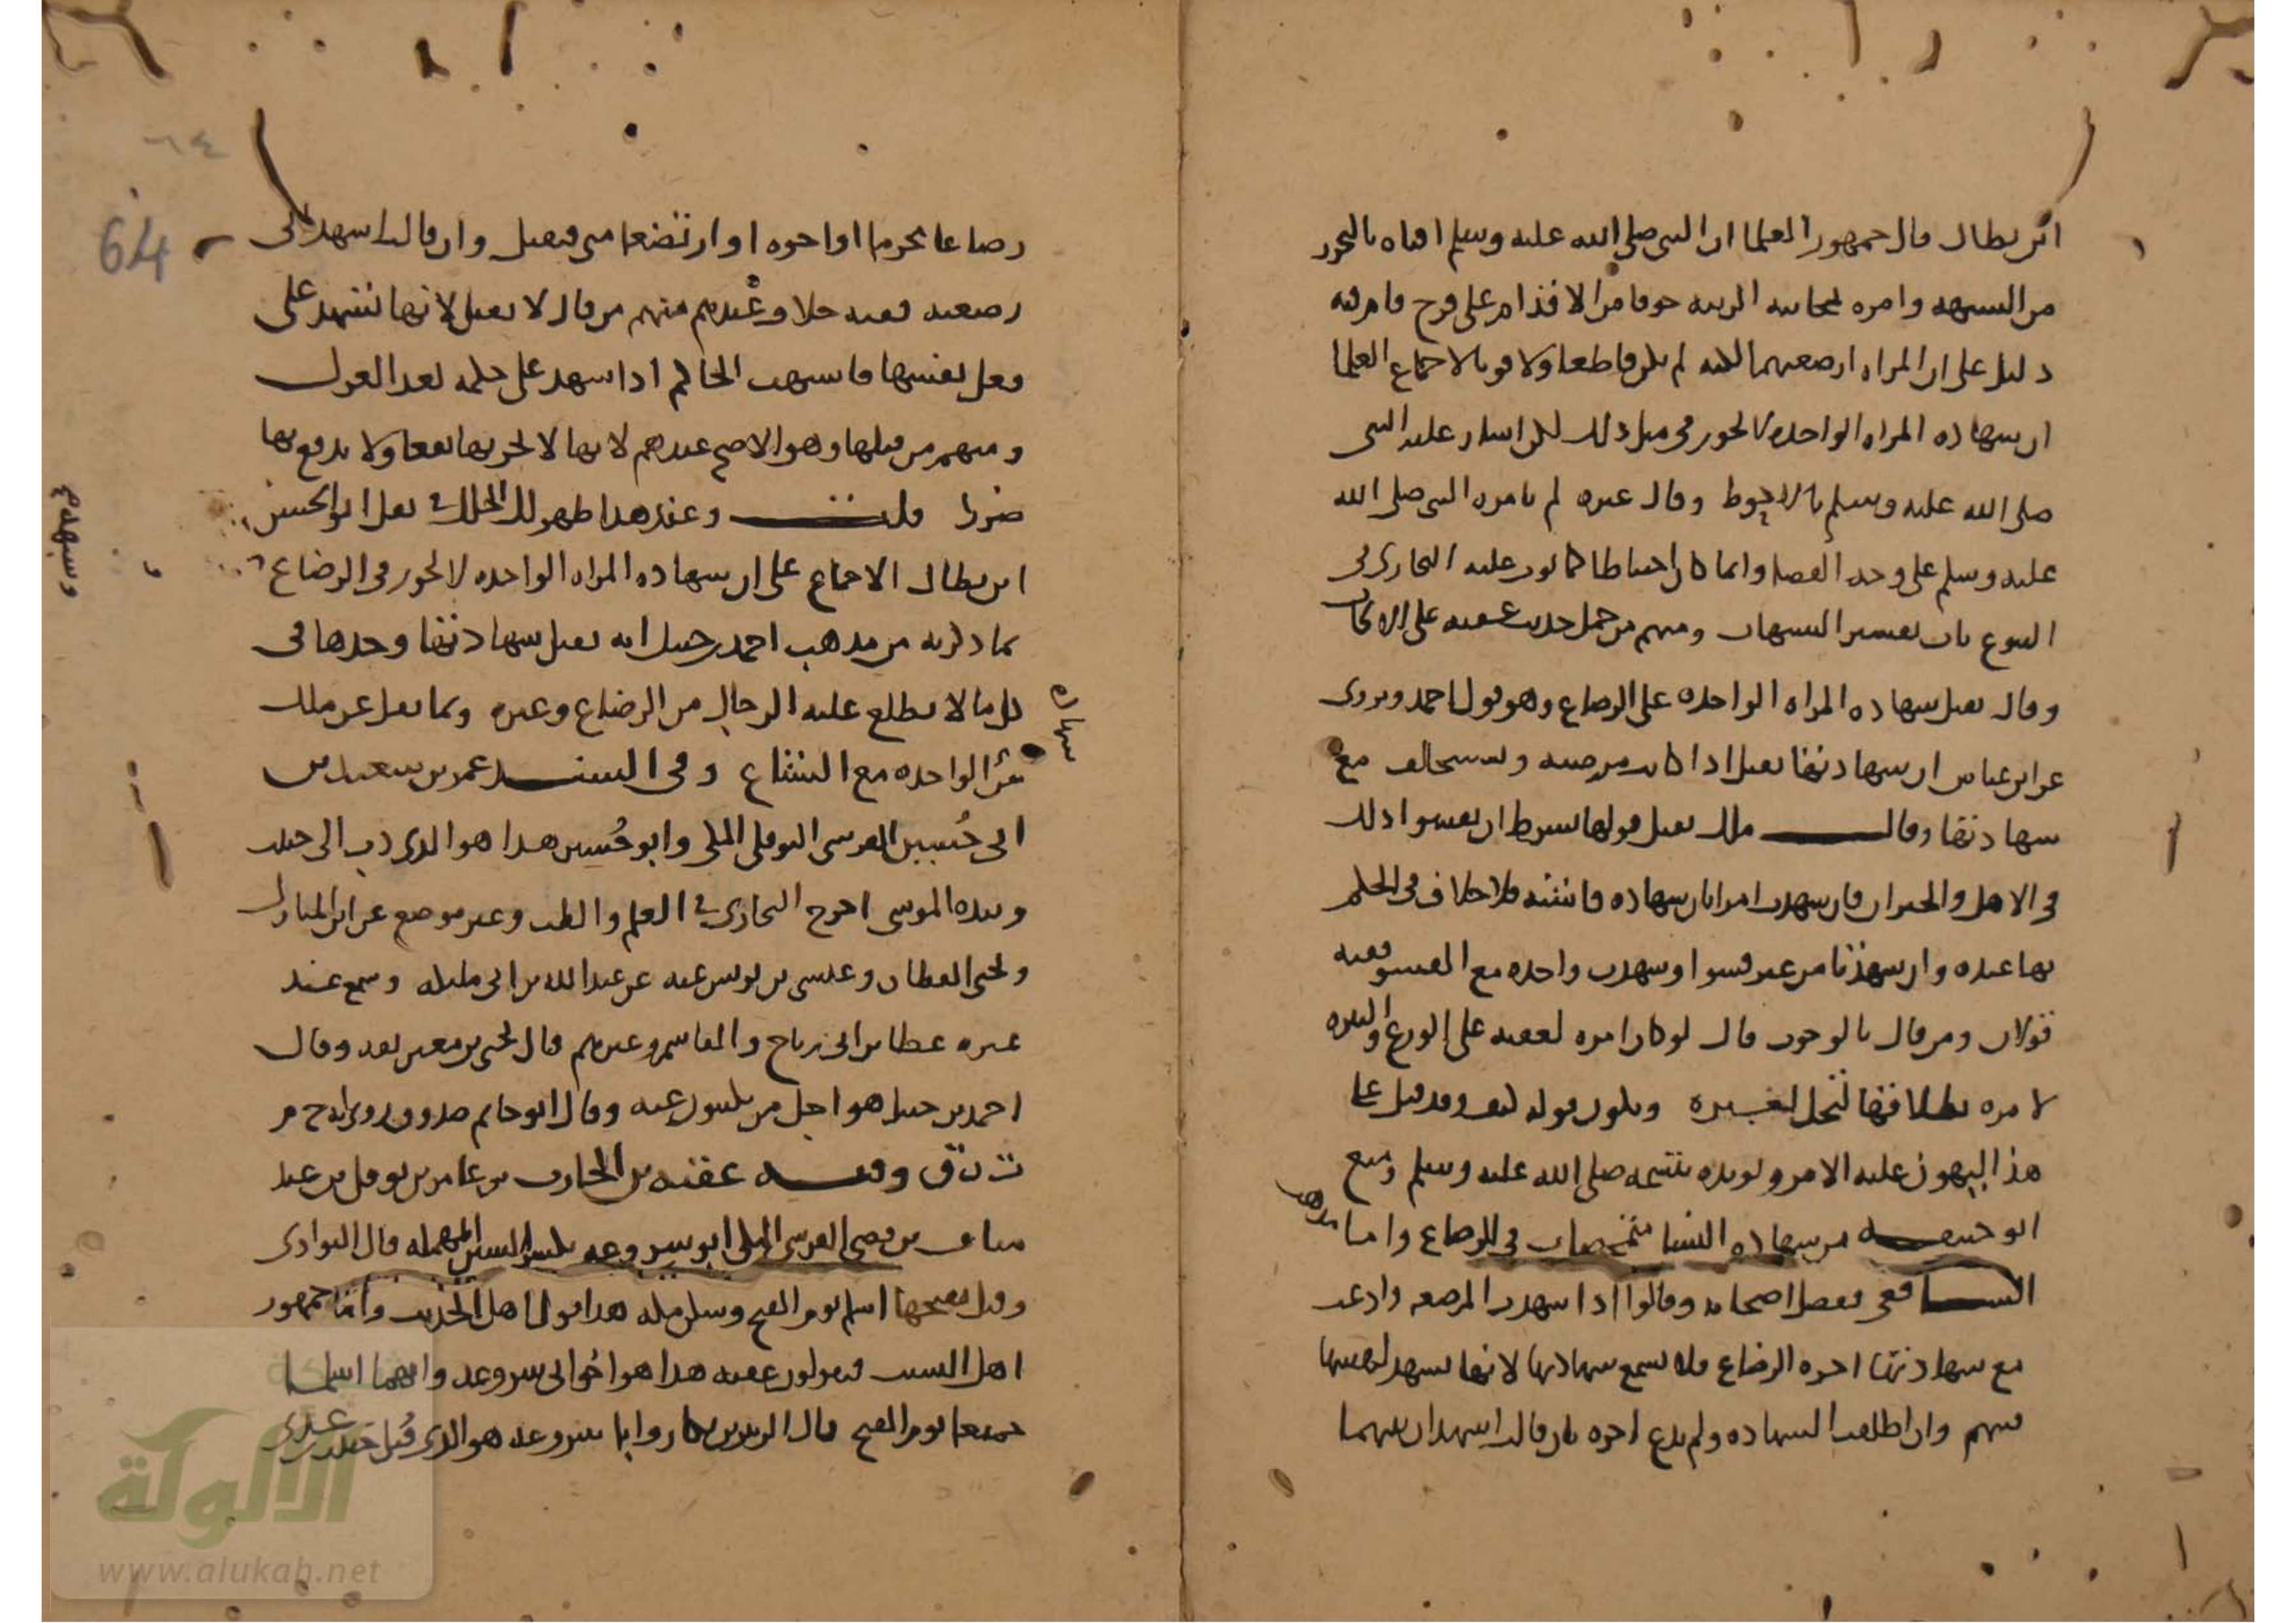 ابن بطال قال جمهور العلما ان النبى صلى الله عليه وسلم افتاه بالتحرز
من الشبهه وامره بمجانبه الريبه خوفا من الاقدام على فرج قام فيه
دليل على ان المراه ارضعتهما لكنه لم يكن قاطعا ولا قويا لاجماع العلما
ان شهاده المراه الواحده لا تجوز فى مثل ذلك لكن اشار عليه النبى
صلى الله عليه وسلم بالاحوط وقال غيره لم يامره النبى صلى الله
عليه وسلم على وجه القضا وانما كان احتياطا كما بوب عليه البخارى فى
البيوع باب تفسير الشبهات ومنهم من حمل حديث عقبه على الايجاب
وقال تقبل شهاده المراه الواحده على الرضاع وهو قول احمد ويروى
عن ابن عباس ان شهادتها تقبل اذا كانت مرضيه وتستحلف مع
شهادتها وقال ملك تقبل قولها بشرط ان يفشوا ذلك
فى الاهل والجيران فان شهدت امراتان شهاده فاشيه فلا خلاف فى الحكم
بها عنده وان شهدتا من غير فشو او شهدت واحده مع الفشو ففيه
قولان ومن قال بالوجوب قال لو كان امره لعقبه على الورع والتنزه
لامره بطلاقها لتحل لغيره ويكون قوله كيف وقد قيل على
هذا ليهون عليه الامر ويويده تبسمه صلى الله عليه وسلم ومنع
ابو حنيفه من شهاده النسا متمحضات فى الرضاع واما مذهب
الشافعى ففصل اصحابه وقالوا اذا شهدت المرضعه وادعت
مع شهادتها اجره الرضاع فلا تسمع شهادتها لانها تشهد لنفسها
فتتهم وان اطلقت الشهاده ولم تدع اجره بان قالت اشهد ان بينهما
64
٦٤
رضاعا محرما او اخوه او ارتضعا منى فتقبل وان قالت اشهد انى
ارضعته ففيه خلاف عندهم منهم من قال لا تقبل لانها تشهد على
فعل نفسها فاشبهت الحاكم اذا شهد على حكمه بعد العزل
ومنهم من قبلها وهو الاصح عندهم لانها لا تجر بها نفعا ولا تدفع بها
ضررا قلت وعند هذا ظهر لك الخلل فى نقل ابو الحسن
ابن بطال الاجماع على ان شهاده المراه الواحده لا تجوز فى الرضاع
بما ذكرته من مذهب احمد بن حنبل انه تقبل شهادتها وحدها فى
كل ما لا يطلع عليه الرجال من الرضاع وغيره وبما نقل عن ملك
شهاده
من الواحده مع الشياع وفى السند عمر بن سعيد بن
ابى حُسين القرشى النوفلى المكى وابو حُسين هذا هو الذى دب الى خبيب
وبيده الموسى اخرج البخارى فى العلم والطب وغير موضع عن ابن المبارك
ويحيى القطان وعيسى بن يونس عنه عن عبد الله بن ابى مليكه وسمع عند
غيره عطا بن ابى رباح والقاسم وغيرهم قال يحيى بن معين ثقه وقال
احمد بن حنبل هو اجل من يكتبون عنه وقال ابو حاتم صدوق روى له خ م
ت ن ق وفيه عقبه بن الحارث بن عامر بن نوفل بن عبد
مناف بن قصى القرشى المكى ابو سروعه بكسر السين المهمله قال النواوى
وقيل بفتحها اسلم يوم الفتح وسكن مكه هذا قول اهل الحديث واما جمهور
اهل النسب فيقولون عقبه هذا هو اخو ابى سروعه وانهما اسلما
جميعا يوم الفتح قال الزبير بن بكار وابا سروعه هو الذى قُتل خبيب بن عدى
وسبهدم
الألوكة
www.alukah.net